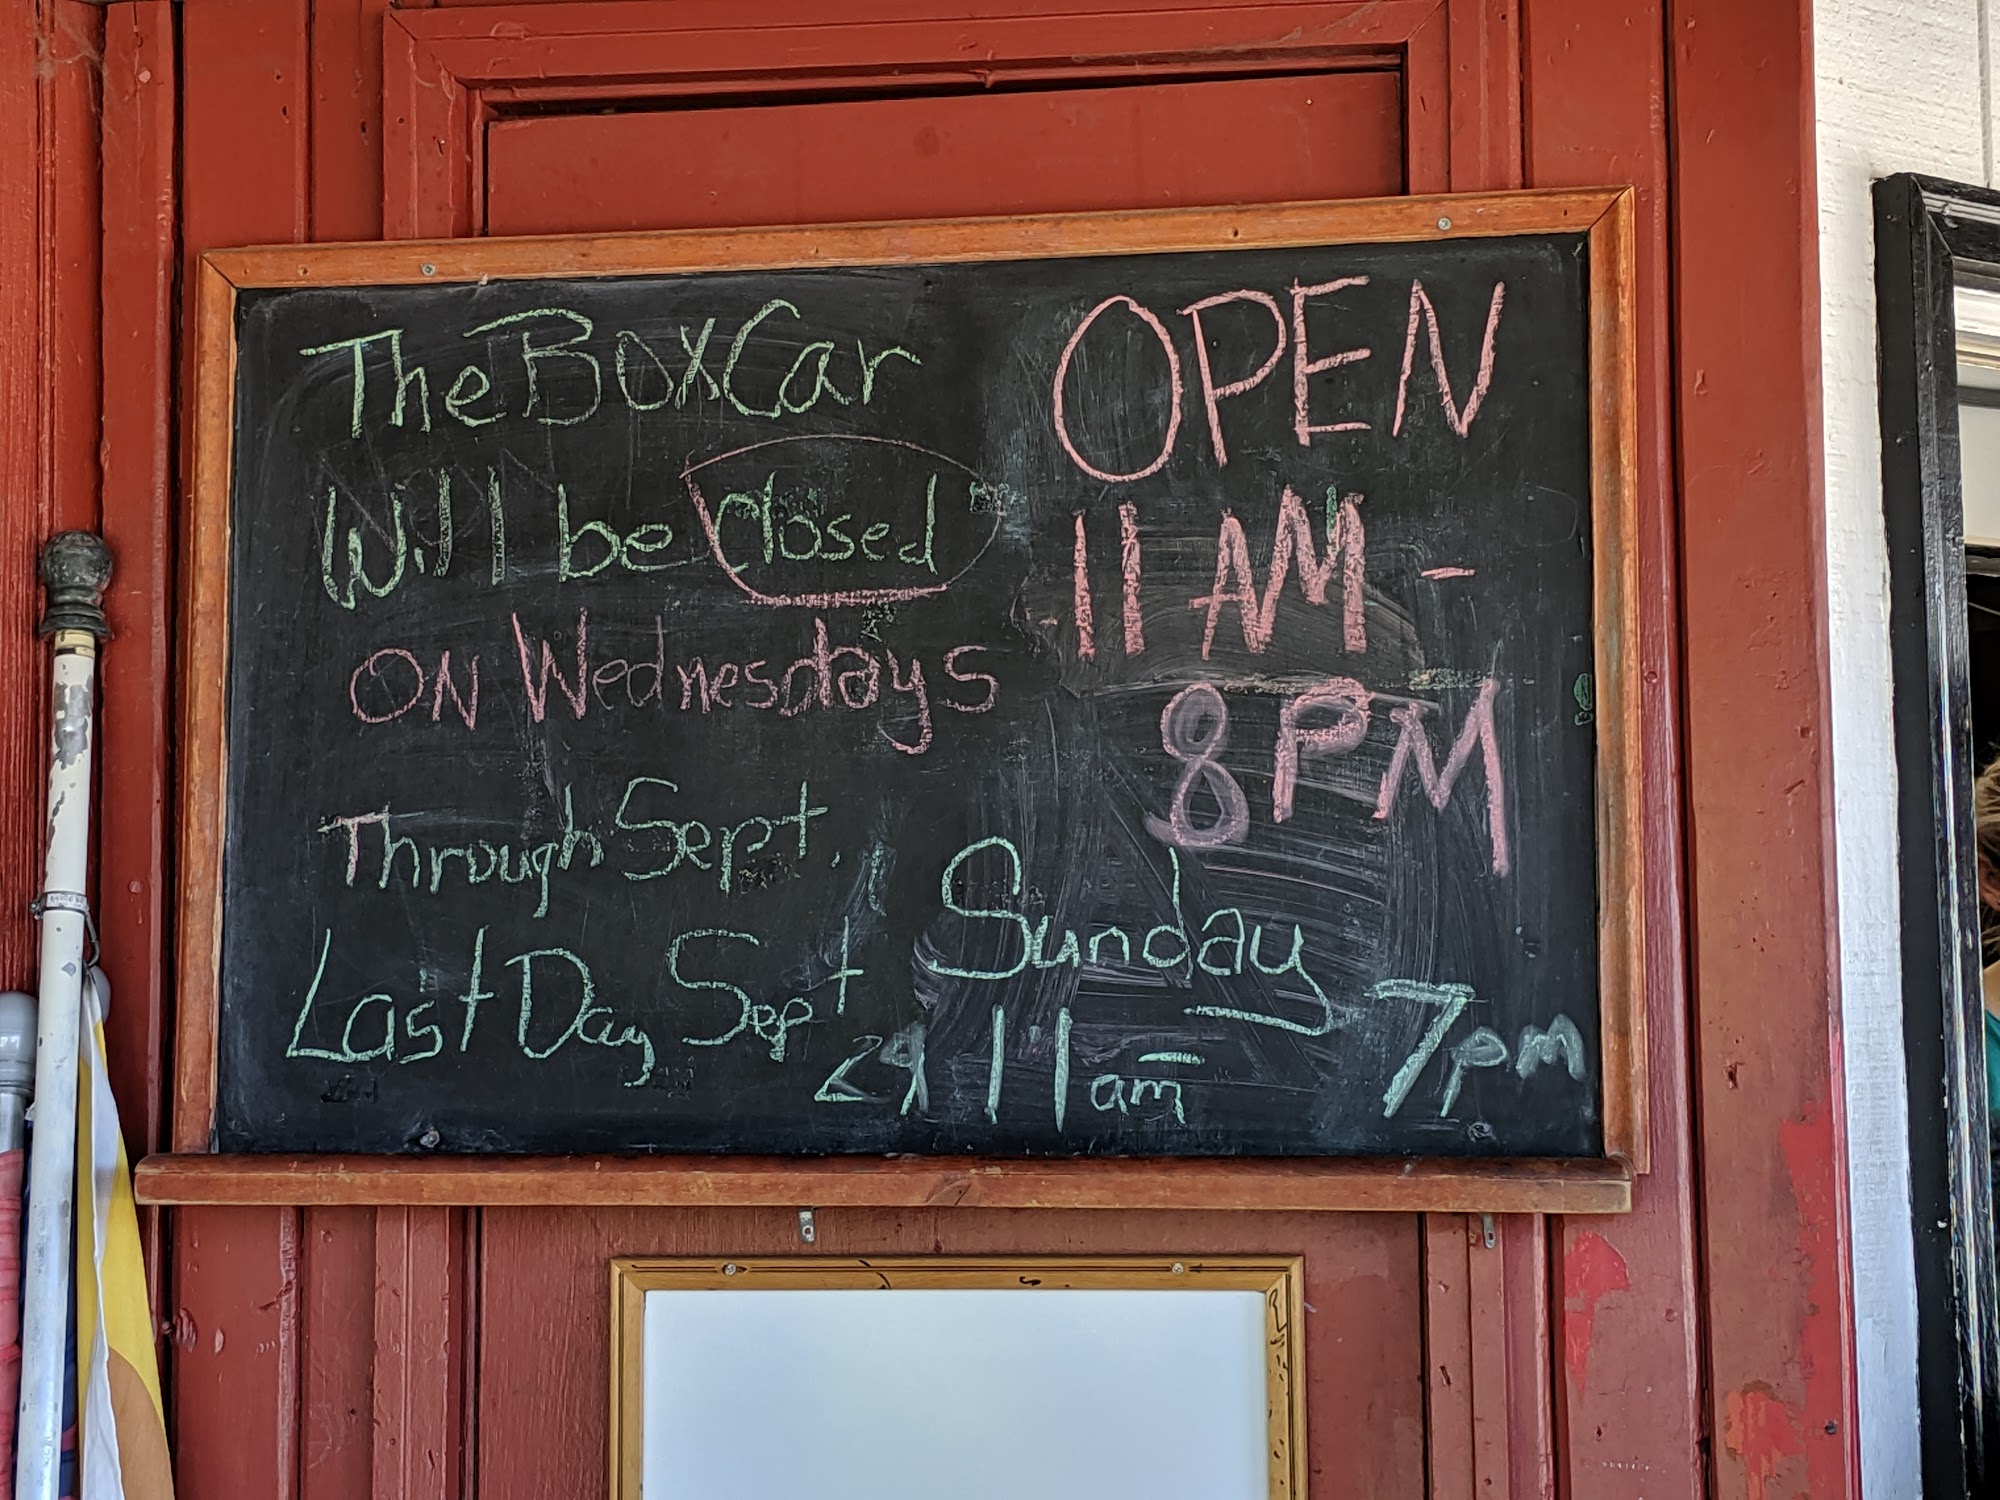 The BoxCar
Will be closed
ON Wednesdays
Through Sept.
Last Day Sept 29
OPEN
11 AM -
8 PM
Sunday
11 am - 7 pm